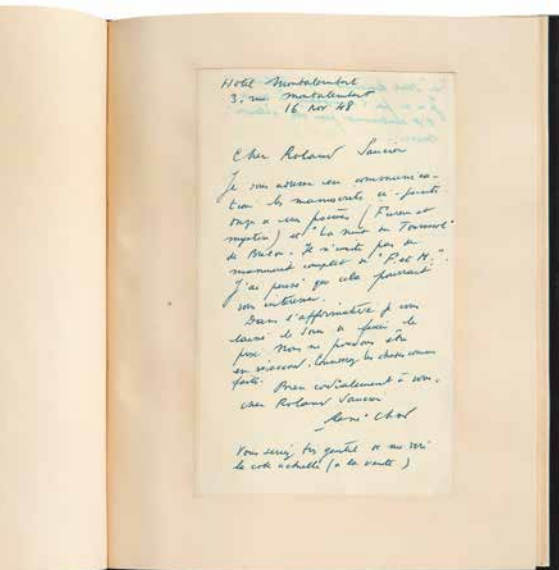 Hotel Montalembert
3, rue Montalembert
16 Nov 48
Cher Roland Saucier
Je vous adresse en communica-
tion les manuscrits ci-joints
onze de mes poèmes (Fureur et
mystère) et "La nuit du Tournesol"
de Breton. Il n'existe pas de
manuscrit complet de "F. et M.".
J'ai pensé que cela pourrait
vous intéresser.
Dans l'affirmative je vous
laisse le soin de fixer le
prix. Nous ne pouvons être
en désaccord. Considérez les choses comme
faites. Bien cordialement à vous,
cher Roland Saucier
René Char
Vous seriez très gentil de me
la cote actuelle (à la vente)